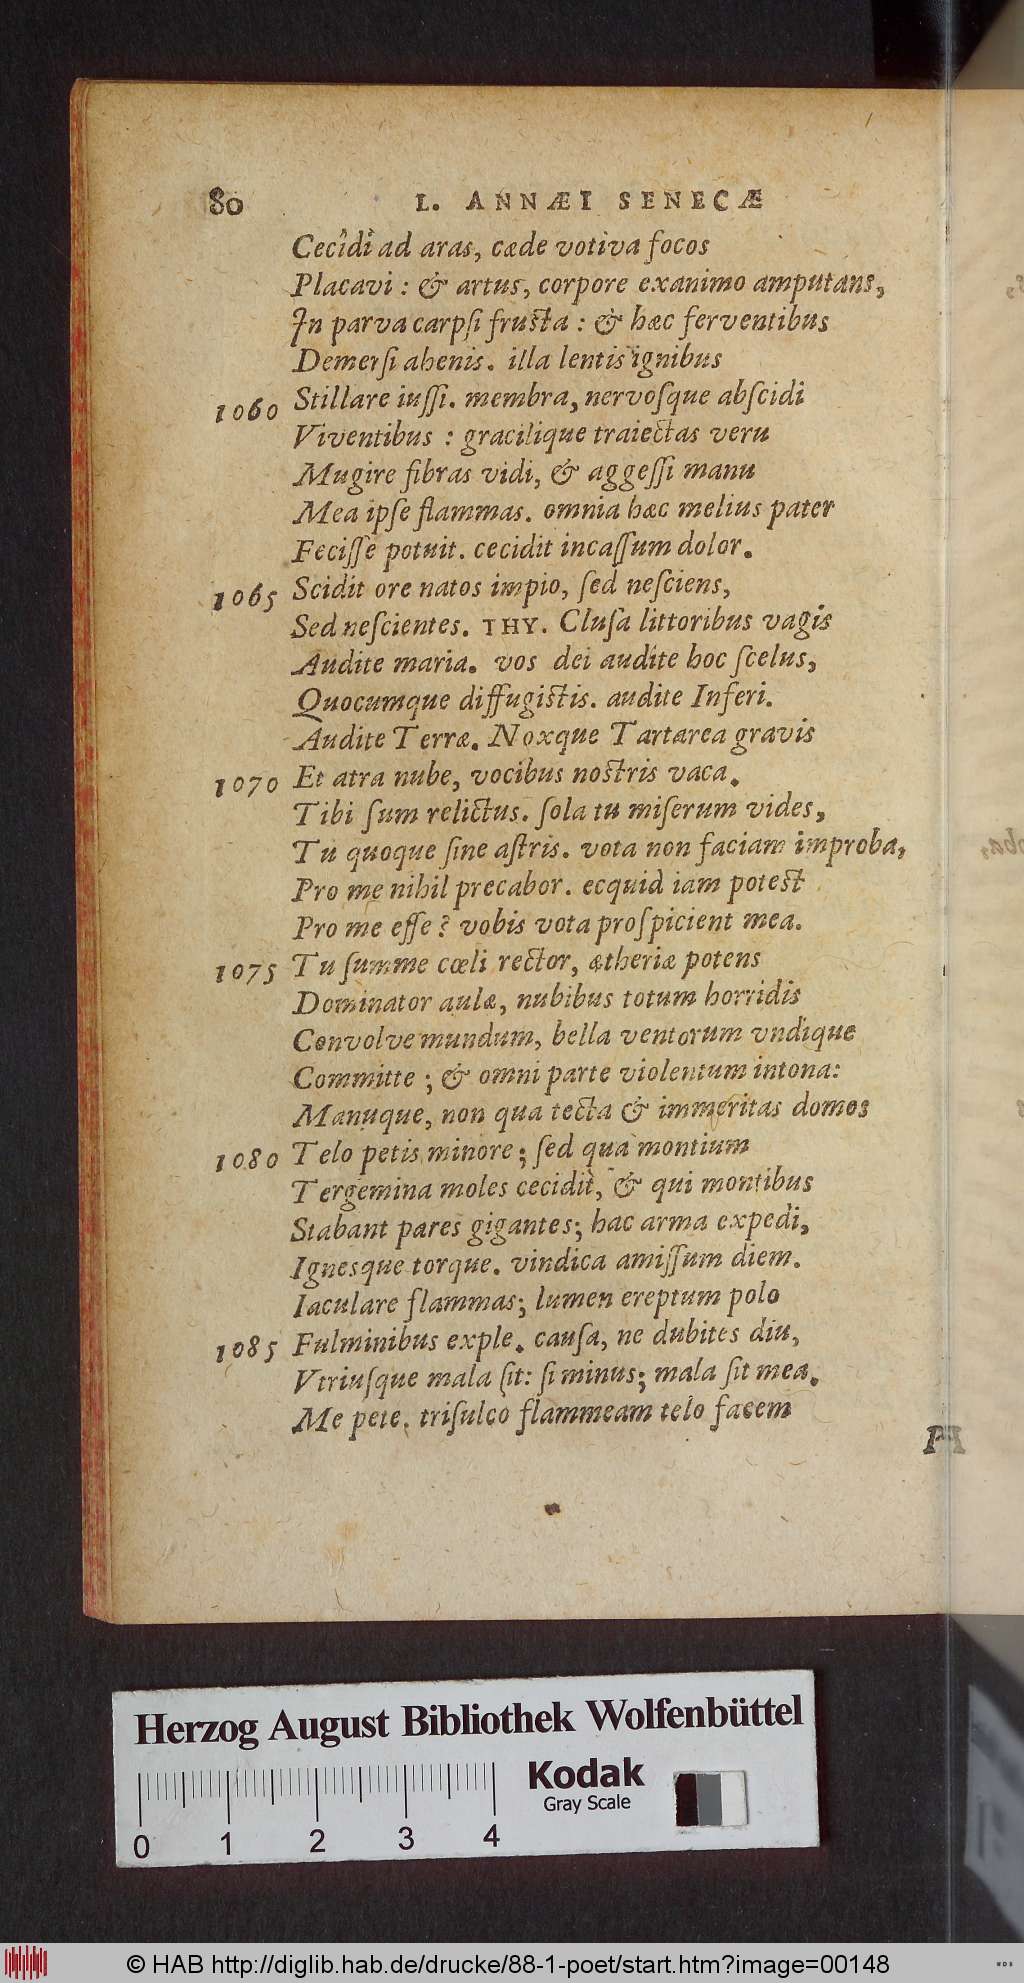 80 L. ANNÆI SENECÆ
Cecidi ad aras, cæde votiva focos
Placavi : & artus, corpore exanimo amputans,
In parva carpſi fruſta : & hæc ferventibus
Demerſi ahenis. illa lentis ignibus
1060 Stillare iuſſi. membra, nervoſque abſcidi
Viventibus : gracilique traiectas veru
Mugire fibras vidi, & aggeſſi manu
Mea ipſe flammas. omnia hæc melius pater
Feciſſe potuit. cecidit incaſſum dolor.
1065 Scidit ore natos impio, ſed neſciens,
Sed neſcientes. THY. Cluſa littoribus vagis
Audite maria. vos dei audite hoc ſcelus,
Quocumque diffugiſtis. audite Inferi.
Audite Terræ. Noxque Tartarea gravis
1070 Et atra nube, vocibus noſtris vaca.
Tibi ſum relictus. ſola tu miſerum vides,
Tu quoque ſine aſtris. vota non faciam improba,
Pro me nihil precabor. ecquid iam poteſt
Pro me eſſe ? vobis vota proſpicient mea.
1075 Tu ſumme cœli rector, ætheriæ potens
Dominator aulæ, nubibus totum horridis
Convolve mundum, bella ventorum vndique
Committe ; & omni parte violentum intona:
Manuque, non qua tecta & immeritas domos
1080 Telo petis minore ; ſed qua montium
Tergemina moles cecidit, & qui montibus
Stabant pares gigantes; hac arma expedi,
Igneſque torque. vindica amiſſum diem.
Iaculare flammas; lumen ereptum polo
1085 Fulminibus exple. cauſa, ne dubites diu,
Vtriuſque mala ſit: ſi minus; mala ſit mea.
Me pete. triſulco flammeam telo facem
Herzog August Bibliothek Wolfenbüttel
Kodak
Gray Scale
0 1 2 3 4
© HAB http://diglib.hab.de/drucke/88-1-poet/start.htm?image=00148